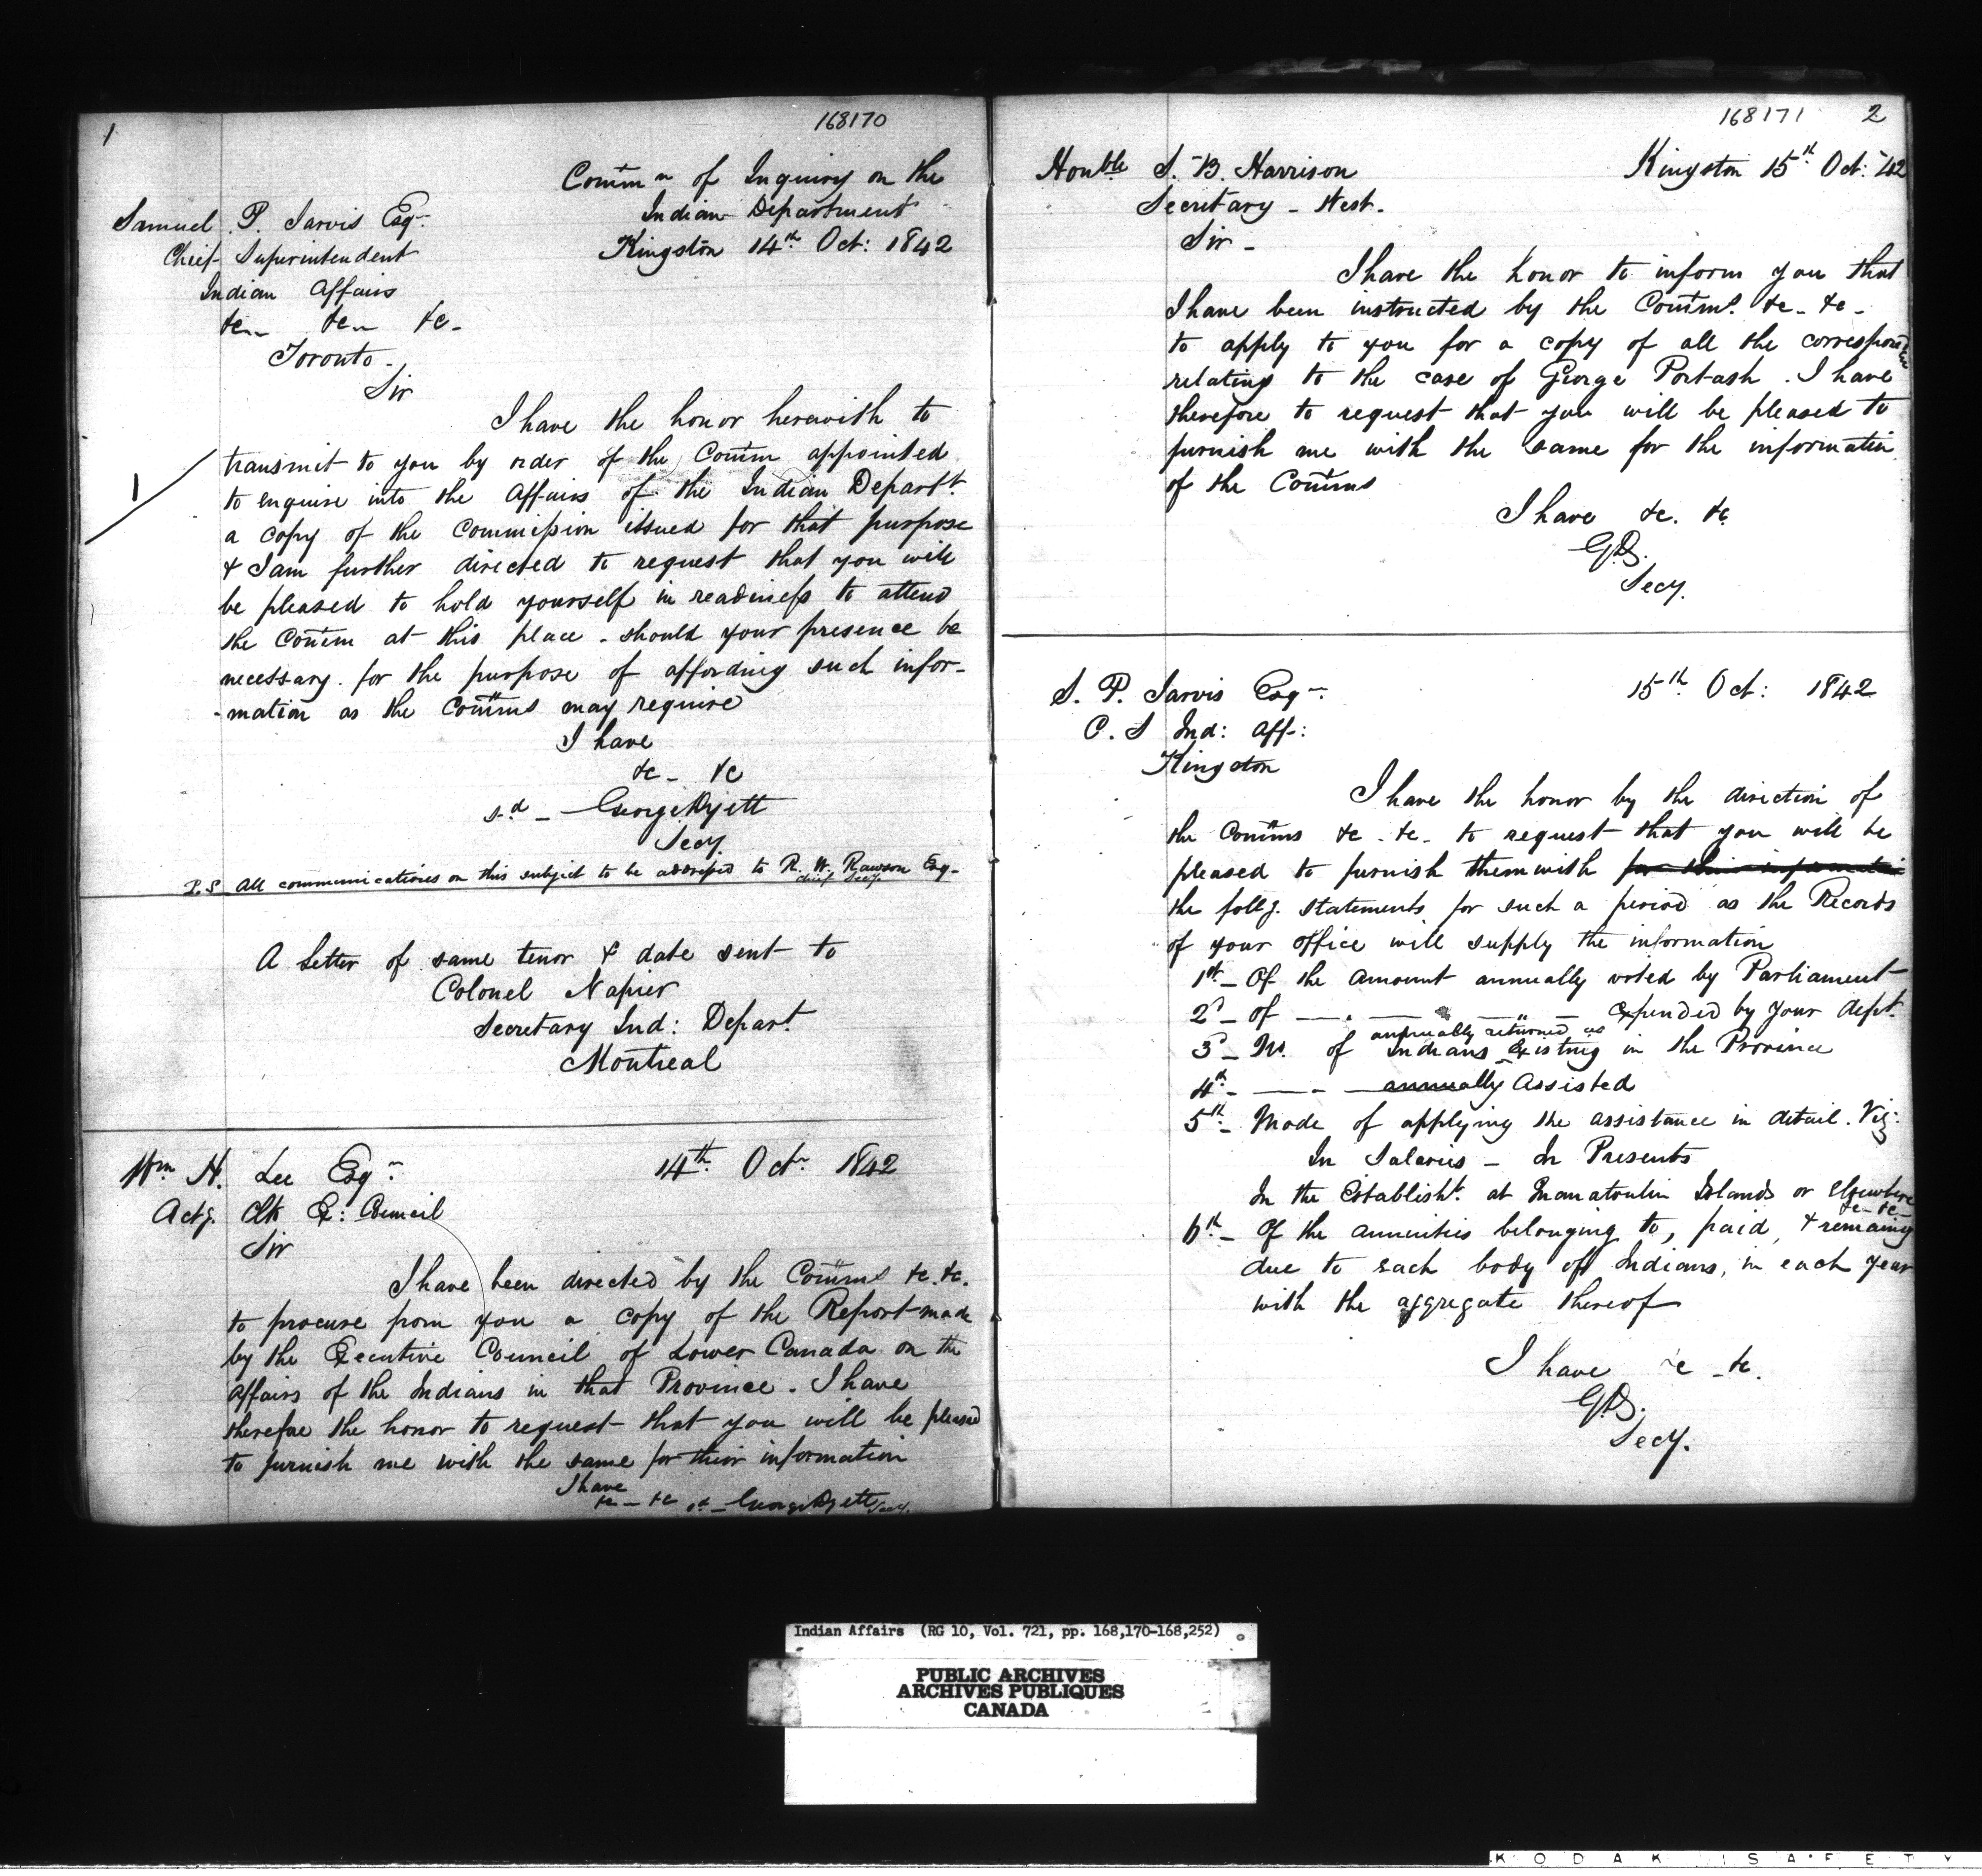 1
168170
Comm n of Inquiry on the
Indian Department
Kingston 14th Oct: 1842
Samuel P. Jarvis Esqr
Chief Superintendent
Indian Affairs
&c &c &c
Toronto
Sir
I have the honor herewith to
transmit to you by order of the Comm appointed
1
to enquire into the Affairs of the Indian Departt
a copy of the Commission issued for that purpose
& I am further directed to request that you will
be pleased to hold yourself in readiness to attend
the Comm at this place - should your presence be
necessary for the purpose of affording such infor-
-mation as the Comms may require
I have
&c - &c
sd - George Dyett
Secy.
P.S. All communications on this subject to be addressed to R. W. Rawson Esq-
chief Secy
A Letter of same tenor & date sent to
Colonel Napier
Secretary Ind: Depart.
Montreal
Wm H. Lee Esqr
14th Octr 1842
Actg. Clk Ex: Council
Sir
I have been directed by the Comms &c. &c.
to procure from you a copy of the Report made
by the Executive Council of Lower Canada on the
Affairs of the Indians in that Province. I have
therefore the honor to request that you will be pleased
to furnish me with the same for their information
I have
&c - &c sd - George Dyett Secy.
168171 2
Honble S. B. Harrison
Kingston 15th Oct: '42
Secretary - West.
Sir -
I have the honor to inform you that
I have been instructed by the Comms. &c - &c -
to apply to you for a copy of all the correspondence
relating to the case of George Portash. I have
therefore to request that you will be pleased to
furnish me with the same for the information
of the Comms
I have &c. &c.
G.D.
Secy.
S. P. Jarvis Esqr
15th Oct: 1842
C. S Ind: Aff:
Kingston
I have the honor by the direction of
the Comms &c - &c - to request that you will be
pleased to furnish them with for their information
the follg. statements for such a period as the Records
of your office will supply the information
1st - Of the Amount annually voted by Parliament
2d - of — " — " — expended by your dept.
annually returned as
3d - No. of Indians Existing in the Province
4th - — - — annually Assisted
5th - Mode of applying the assistance in detail. Viz:
In Salaries - In Presents
In the Establisht. at Manatoulin Islands or Elsewhere
&c - &c -
6th - Of the annuities belonging to, paid, & remaing
due to each body of Indians, in each year
with the aggregate thereof
I have &c - &c.
G.D.
Secy.
Indian Affairs (RG 10, Vol. 721, pp. 168,170-168,252)
PUBLIC ARCHIVES
ARCHIVES PUBLIQUES
CANADA
KODAK SAFETY